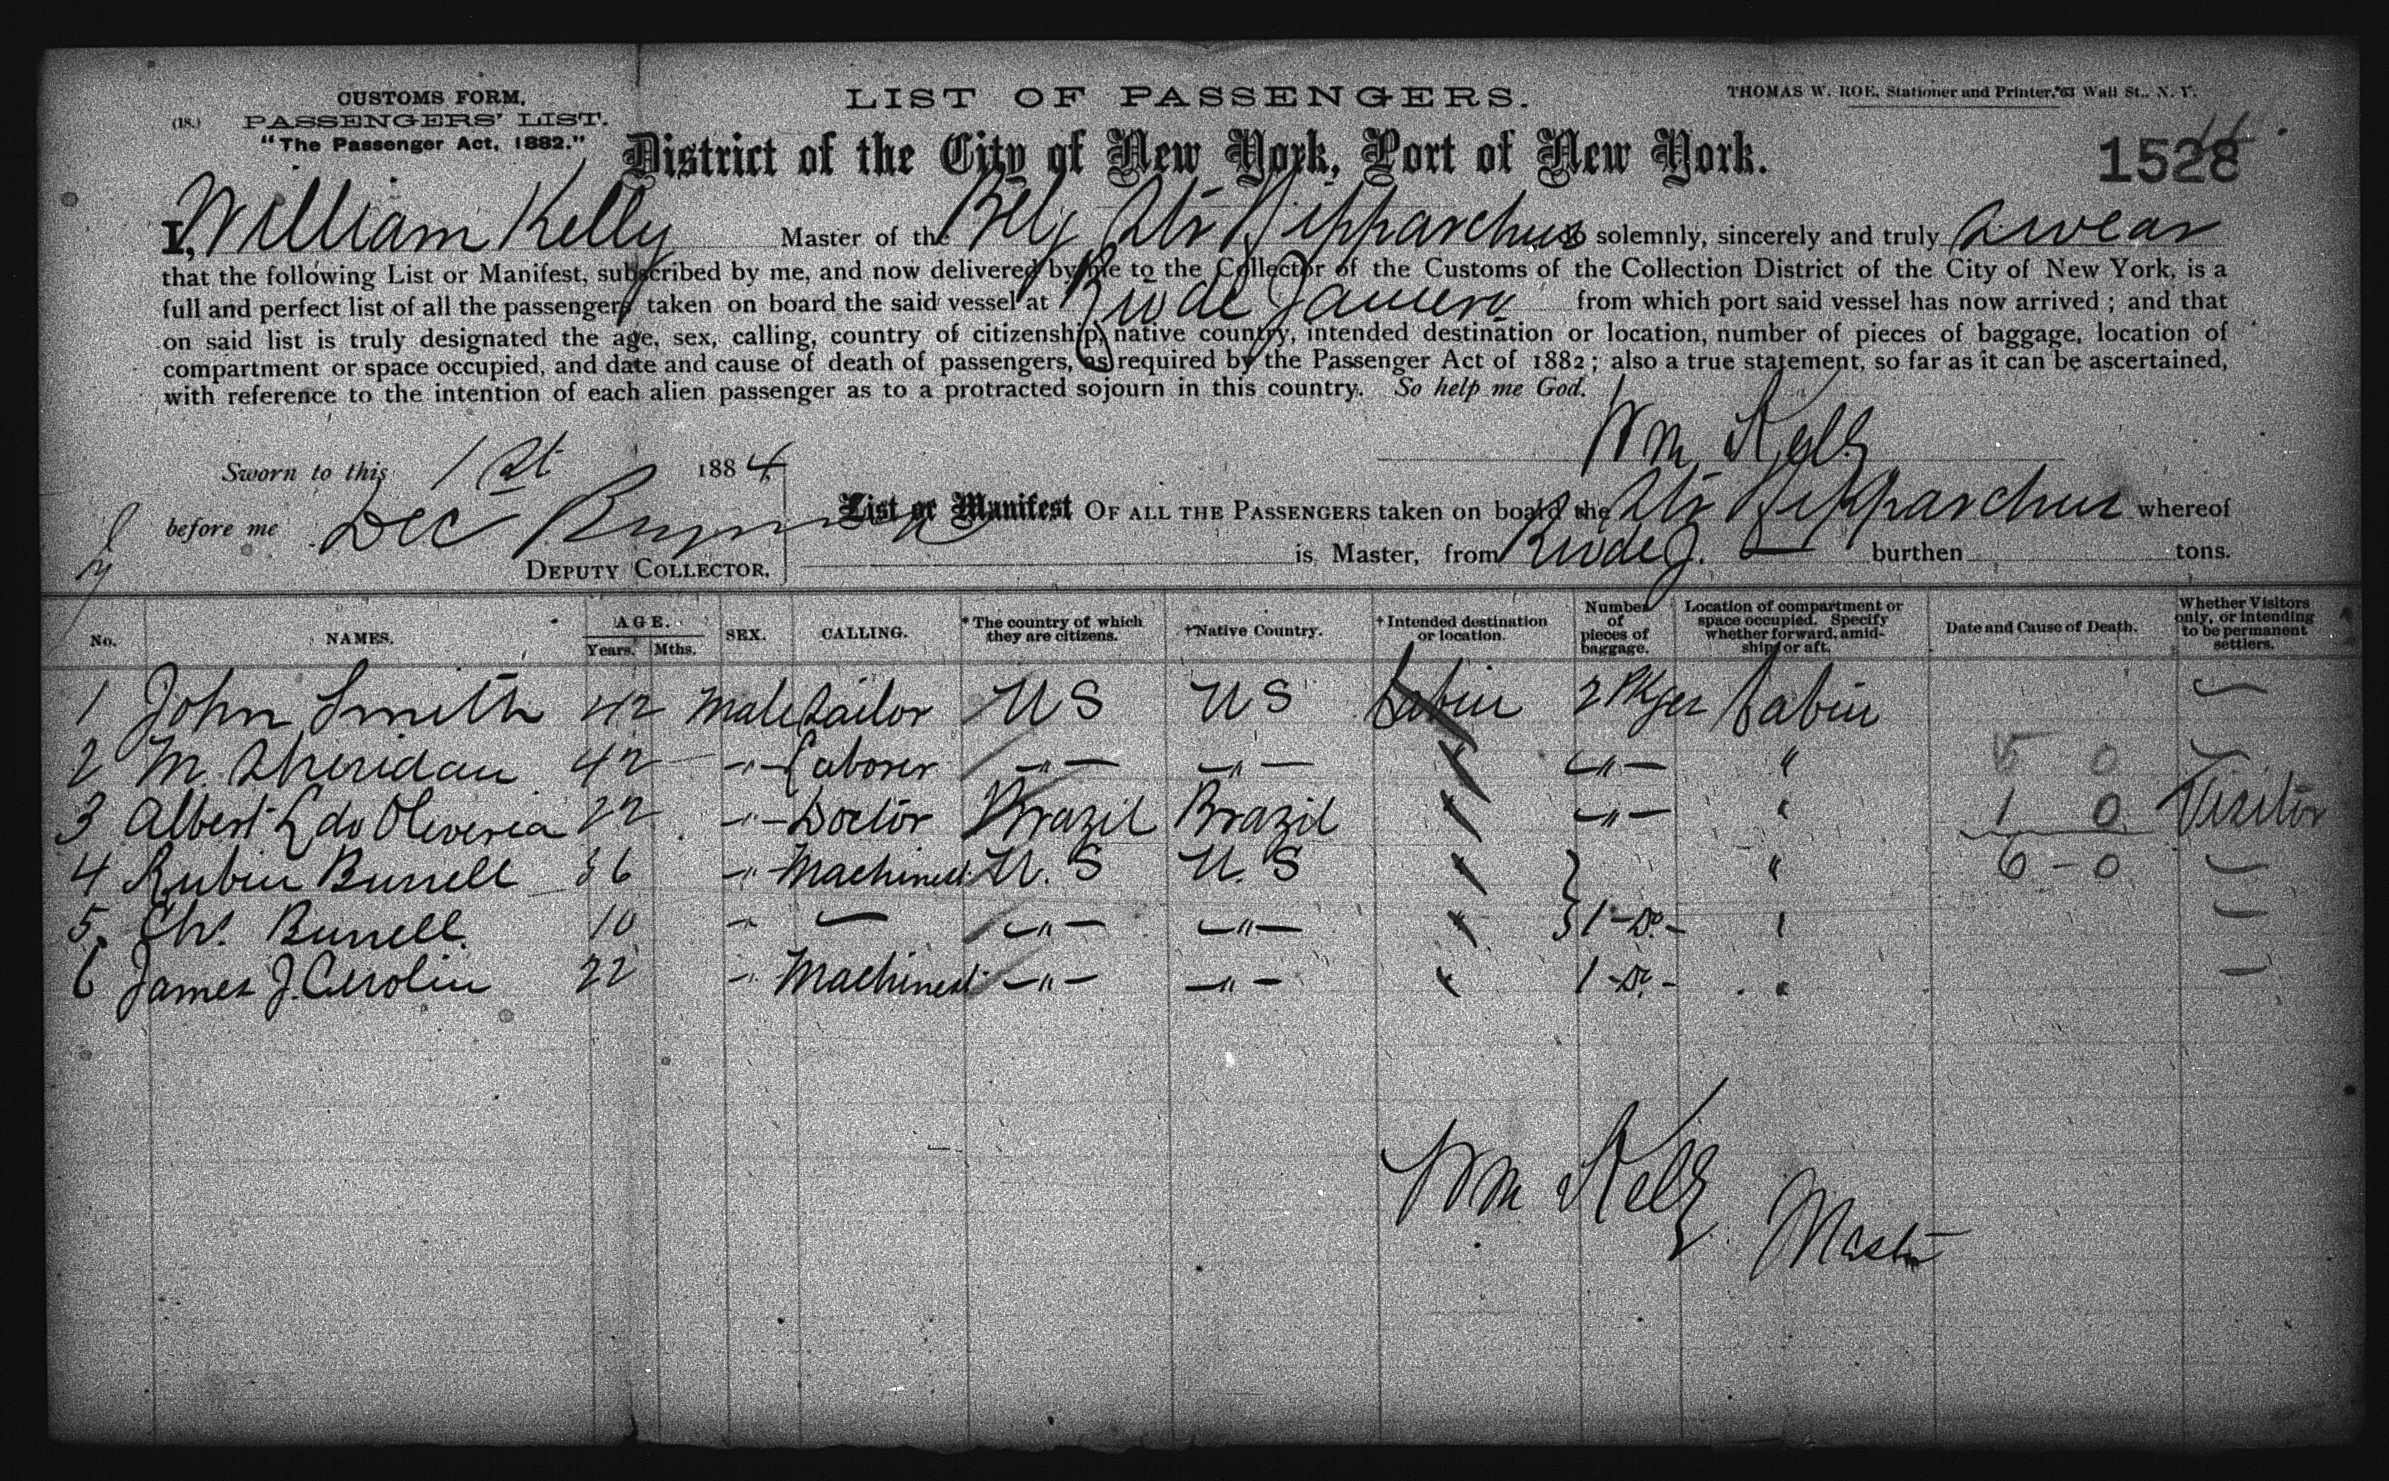 CUSTOMS FORM,
(18.) PASSENGERS' LIST.
"The Passenger Act, 1882."
LIST OF PASSENGERS.
THOMAS W. ROE, Stationer and Printer, 63 Wall St., N. Y.
District of the City of New York, Port of New York.
1528
I, William Kelly Master of the Belg Str Hipparchus do solemnly, sincerely and truly swear
that the following List or Manifest, subscribed by me, and now delivered by me to the Collector of the Customs of the Collection District of the City of New York, is a
full and perfect list of all the passengers taken on board the said vessel at Rio de Janeiro from which port said vessel has now arrived; and that
on said list is truly designated the age, sex, calling, country of citizenship, native country, intended destination or location, number of pieces of baggage, location of
compartment or space occupied, and date and cause of death of passengers, as required by the Passenger Act of 1882; also a true statement, so far as it can be ascertained,
with reference to the intention of each alien passenger as to a protracted sojourn in this country. So help me God.
Wm Kelly
Sworn to this 1st 1884
before me Dec
DEPUTY COLLECTOR.
List or Manifest OF ALL THE PASSENGERS taken on board the Str Hipparchus whereof
is Master, from Rio de J. burthen tons.
No. NAMES. AGE. Years. Mths. SEX. CALLING. * The country of which they are citizens. †Native Country. † Intended destination or location. Number of pieces of baggage. Location of compartment or space occupied. Specify whether forward, amidship, or aft. Date and Cause of Death. Whether Visitors only, or intending to be permanent settlers.
1 John Smith 42 Male Sailor U S U S Cabin 2 Pkges Cabin —
2 M. Sheridan 42 -"- Laborer -"- -"- " -"- " 5 0 —
3 Albert L do Oliveria 22 -"- Doctor Brazil Brazil " -"- " 1 0 Visitor
4 Rubin Bunell 36 -"- Machinest U. S U. S " " 6 - 0 —
5. Chs. Bunell 10 -"- — -"- -"- " 1 - Do - " —
6 James J. 22 -"- Machinest -"- -"- " 1 - Do - " —
Wm Kelly
Master